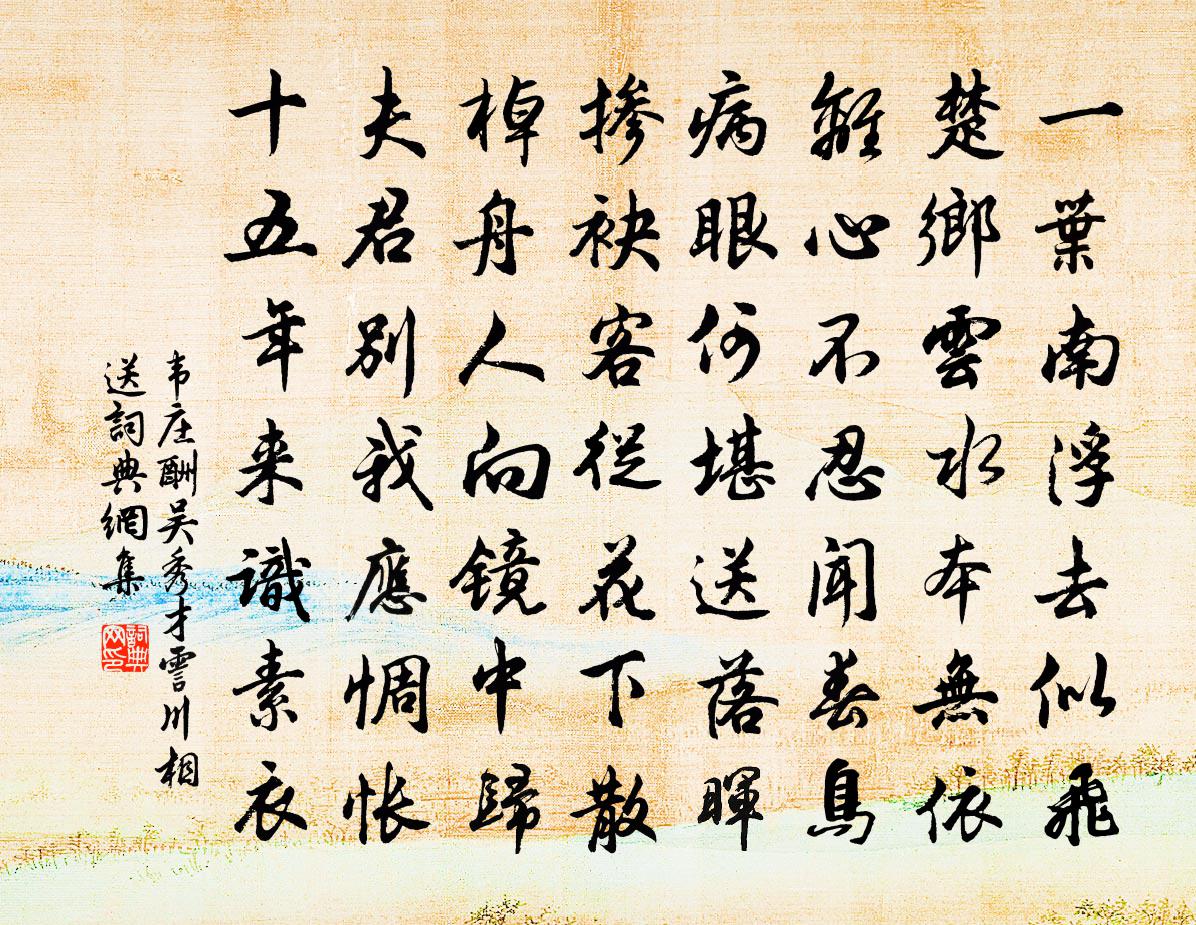 一葉南浮去似飛
楚鄉雲水本無依
離心不忍聞春鳥
病眼何堪送落暉
掺袂客從花下散
棹舟人向镜中歸
夫君別我應惆怅
十五年来識素衣
韦庄酬吴秀才霅川相
送詞典網集
詞典
网印